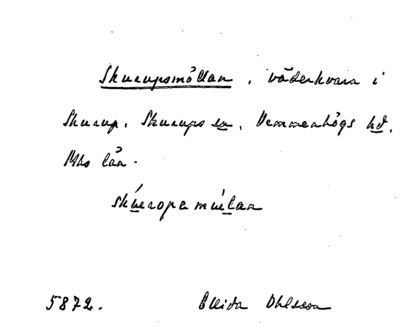 Skurupsmöllan, väderkvarn i
Skurup, Skurups sn, Vemmenhögs hd,
Mhs län.
skúeropsmúelan
5872. Elida Ohlsson